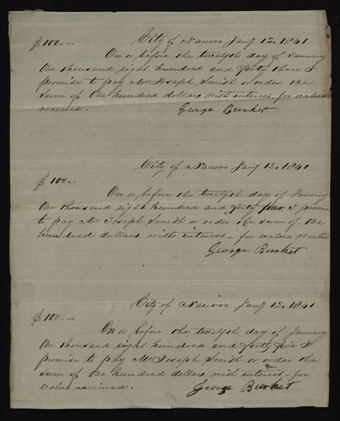 City of Nauvoo Jany 12, 1841
$100.--
On or before the twelfth day of January
One thousand eight hundred and forty three I
promise to pay Mr Joseph Smith or order the
sum of One hundred dollars with interest, for value
received.
George Burket
City of Nauvoo Jany 12, 1841
$100.-
On or before the twelfth day of January
One thousand eight hundred and forty four I promise
to pay Mr Joseph Smith or order the sum of One
hundred dollars with interest - for value
George Burket
City of Nauvoo Jany 12, 1841
$100.--
On or before the twelfth day of January
One thousand eight hundred and forty five I
promise to pay Mr Joseph Smith or order the
sum of One hundred dollars with interest - for
value received.
George Burket